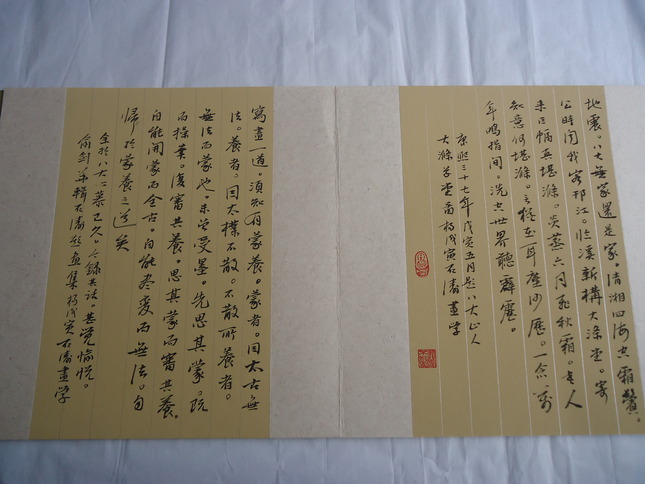 地震。八大無家還是家。清湘四海空霜鬢。
公時聞我客邗江。臨溪新構大滌堂。寄
來巨幅真堪滌。炎蒸六月飛秋霜。老人
知意何堪滌。言猶在耳塵沙歷。一念萬
年鳴指間。洗空世界聽霹靂。
康熙三十七年戊寅五月題八大山人
大滌草堂圖 抄戊寅石濤畫學
寫畫一道。須知有蒙養。蒙者。因太古無
法。養者。因太樸不散。不散所養者。
無法而蒙也。未曾受墨。先思其蒙。既
而操筆。復審其養。思其蒙而審其養。
自能開蒙而全古。自能盡變而無法。自
歸於蒙養之道矣
余於八大二慕已久。今錄其話。甚覺愉悅。
俞劍華輯石濤題畫集 抄戊寅石濤畫學